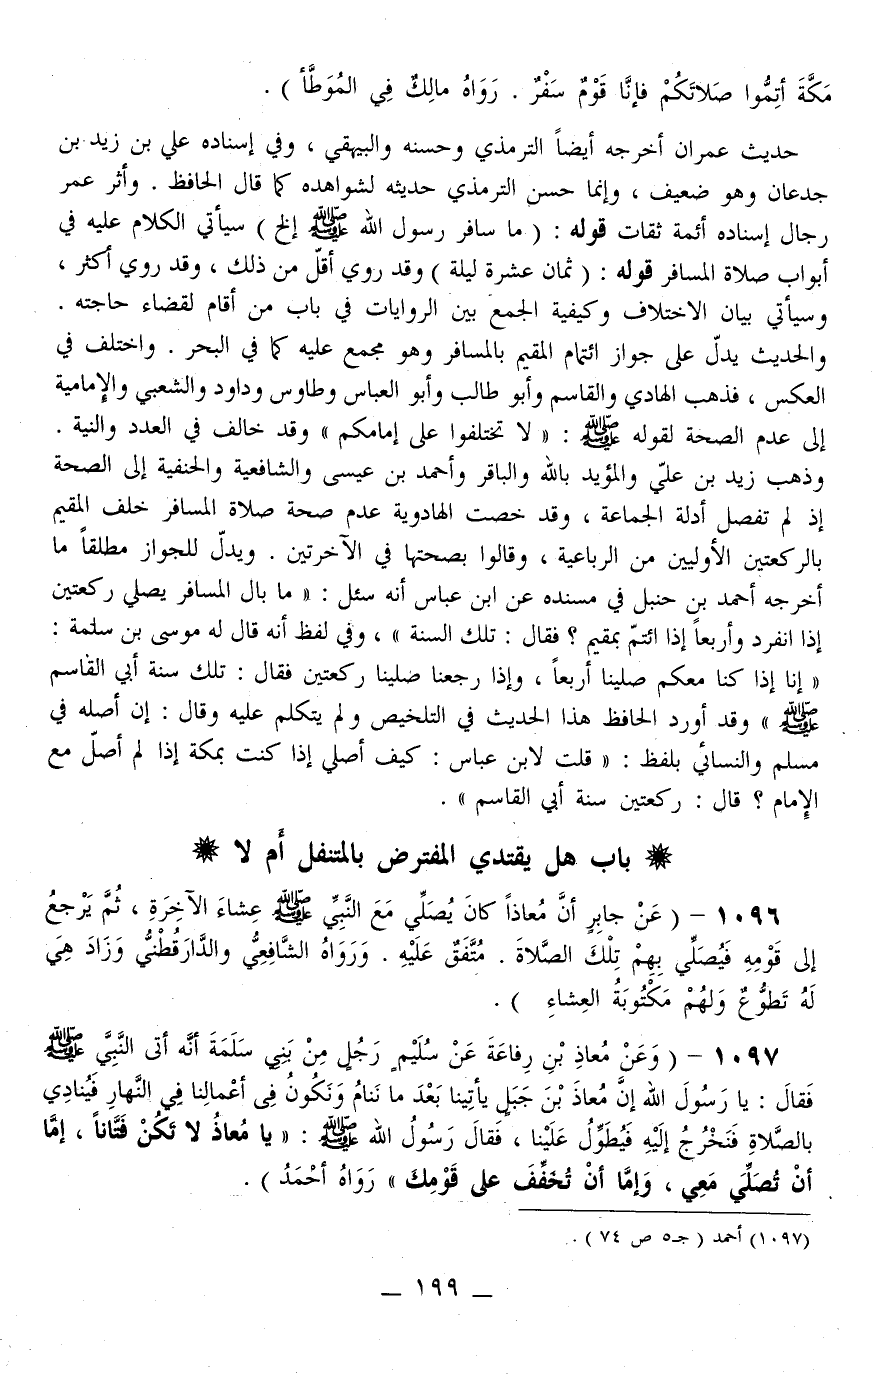 مَكَّةَ أَتِمُّوا صَلَاتَكُمْ فإنَّا قَوْمٌ سَفْرٌ . رَوَاهُ مالِكٌ فِي المُوَطَّأ ) .
حديث عمران أخرجه أيضاً الترمذي وحسنه والبيهقي ، وفي إسناده علي بن زيد بن
جدعان وهو ضعيف ، وإنما حسن الترمذي حديثه لشواهده كما قال الحافظ . وأثر عمر
رجال إسناده أئمة ثقات قوله : ( ما سافر رسول الله ﷺ إلخ ) سيأتي الكلام عليه في
أبواب صلاة المسافر قوله : ( ثمان عشرة ليلة ) وقد روي أقلّ من ذلك ، وقد روي أكثر ،
وسيأتي بيان الاختلاف وكيفية الجمع بين الروايات في باب من أقام لقضاء حاجته .
والحديث يدلّ على جواز ائتمام المقيم بالمسافر وهو مجمع عليه كما في البحر . واختلف في
العكس ، فذهب الهادي والقاسم وأبو طالب وأبو العباس وطاوس وداود والشعبي والإمامية
إلى عدم الصحة لقوله ﷺ : « لا تختلفوا على إمامكم » وقد خالف في العدد والنية .
وذهب زيد بن عليّ والمؤيد بالله والباقر وأحمد بن عيسى والشافعية والحنفية إلى الصحة
إذ لم تفصل أدلة الجماعة ، وقد خصت الهادوية عدم صحة صلاة المسافر خلف المقيم
بالركعتين الأوليين من الرباعية ، وقالوا بصحتها في الآخرتين . ويدلّ للجواز مطلقاً ما
أخرجه أحمد بن حنبل في مسنده عن ابن عباس أنه سئل : « ما بال المسافر يصلي ركعتين
إذا انفرد وأربعاً إذا ائتمّ بمقيم ؟ فقال : تلك السنة » ، وفي لفظ أنه قال له موسى بن سلمة :
« إنا إذا كنا معكم صلينا أربعاً ، وإذا رجعنا صلينا ركعتين فقال : تلك سنة أبي القاسم
ﷺ » وقد أورد الحافظ هذا الحديث في التلخيص ولم يتكلم عليه وقال : إن أصله في
مسلم والنسائي بلفظ : « قلت لابن عباس : كيف أصلي إذا كنت بمكة إذا لم أصلّ مع
الإمام ؟ قال : ركعتين سنة أبي القاسم » .
❋ باب هل يقتدي المفترض بالمتنفل أَم لا ❋
١٠٩٦ – ( عَنْ جابِرٍ أنَّ مُعاذاً كانَ يُصَلِّي مَعَ النَّبِيِّ ﷺ عِشاءَ الآخِرَةِ ، ثُمَّ يَرْجعُ
إلى قَوْمِهِ فَيُصَلِّي بِهِمْ تِلْكَ الصَّلاةَ . مُتَّفَقٌ عَلَيْهِ . وَرَوَاهُ الشَّافِعِيُّ والدَّارَقُطْنِيُّ وَزَادَ هِيَ
لَهُ تَطَوُّعٌ وَلهُمْ مَكْتُوبَةُ العِشاءِ ) .
١٠٩٧ – ( وَعَنْ مُعاذِ بْنِ رِفاعَةَ عَنْ سُلَيْمٍ رَجُلٍ مِنْ بَنِي سَلَمَةَ أنَّه أتى النَّبِيَّ ﷺ
فَقالَ : يا رَسُولَ الله إنَّ مُعاذَ بْنَ جَبَلٍ يأتِينا بَعْدَ ما نَنامُ وَنَكُونُ فِى أعْمالِنا فِي النَّهارِ فَيُنادِي
بالصَّلاةِ فَنَخْرُجُ إلَيْهِ فَيُطَوِّلُ عَلَيْنا ، فَقالَ رَسُولُ الله ﷺ : « يا مُعاذُ لا تَكُنْ فَتَّاناً ، إمَّا
أنْ تُصَلِّيَ مَعِي ، وَإمَّا أنْ تُخَفِّفَ على قَوْمِكَ » رَوَاهُ أحْمَدُ ) .
(١٠٩٧) أحمد ( جـ٥ ص ٧٤ ) .
ــ ١٩٩ ــ